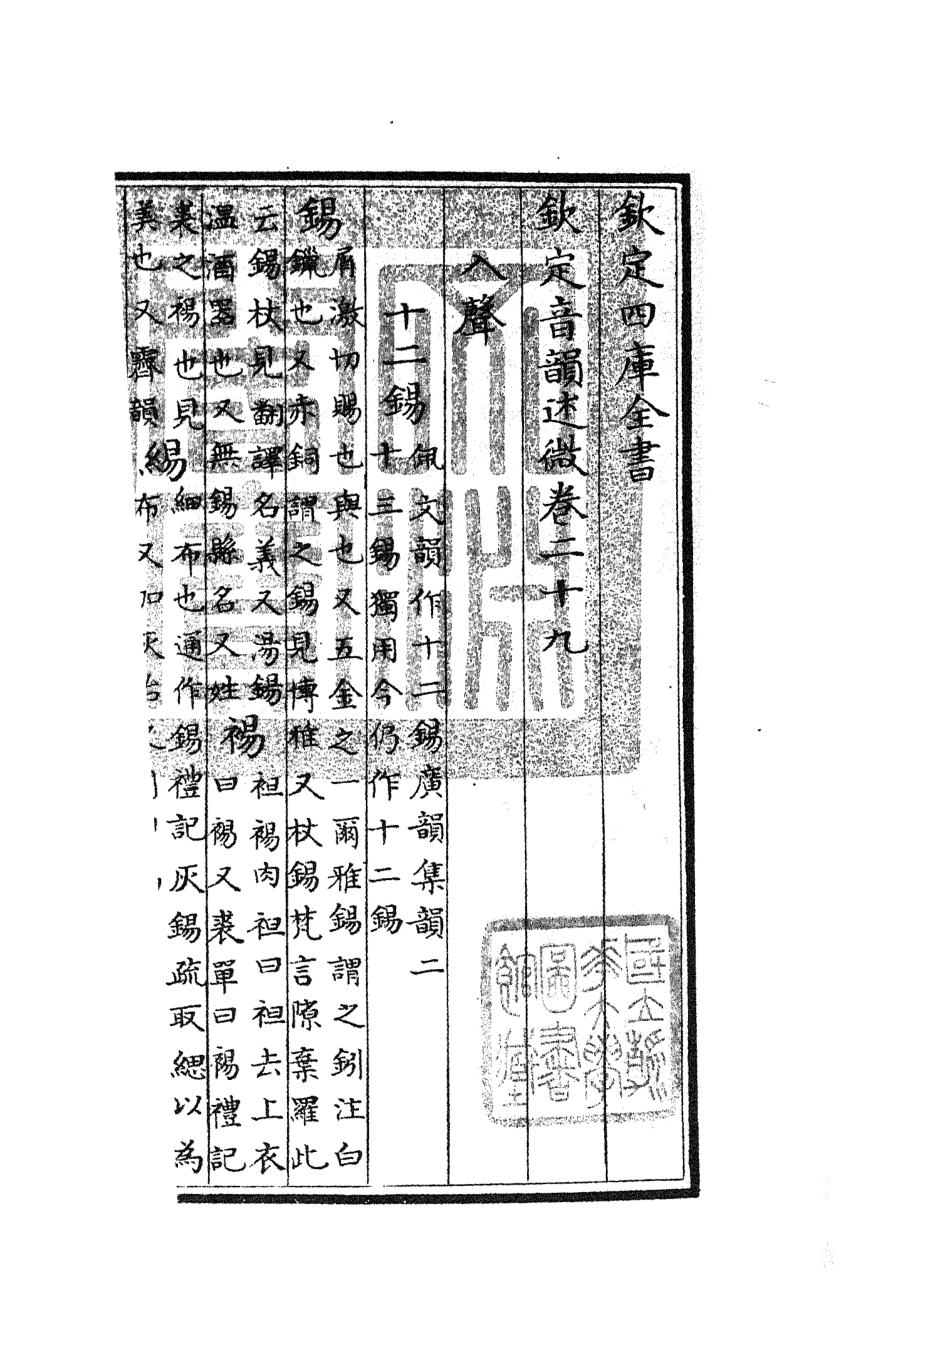 欽定四庫全書
欽定音韻述微卷二十九
入聲
十二錫
佩文韻作十二錫廣韻集韻二
十三錫獨用今仍作十二錫
錫
屑激切賜也與也又五金之一爾雅錫謂之鈏注白
鑞也又赤銅謂之錫見博雅又杖錫梵言隙棄羅此
云錫杖見翻譯名義又湯錫
溫酒器也又無錫縣名又姓
裼
袒裼肉袒曰袒去上衣
曰裼又裘單曰裼禮記
裘之裼也見
美也又霽韻
緆
細布也通作錫禮記灰錫疏取緦以為
布又加灰治